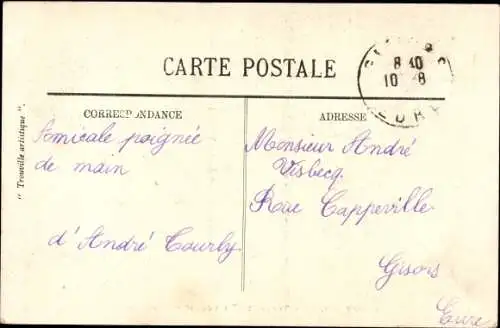 CARTE POSTALE
8 40
10 8
CORRESPONDANCE
ADRESSE
" Trouville artistique ".
Amicale poignée
de main
d'André Courly
Monsieur André
Visbecq
Rue Cappeville
Gisors
Eure